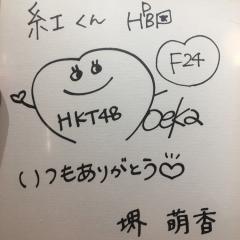 紅くん HPBD
F24
HKT48 Oeka
いつもありがとう♡
堺 萌香